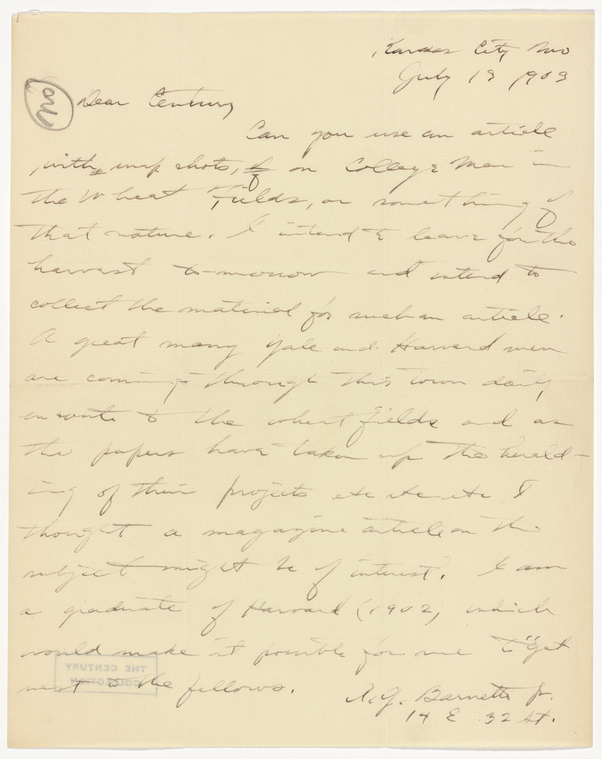 Kansas City Mo
July 19 1903
Dear Century
Can you use an article
, with snap shots, of on College Men in
the Wheat Fields, or something of
that nature. I intend to leave for the
harvest to-morrow and intend to
collect the material for such an article.
A great many Yale and Harvard men
are coming through this town daily
en route to the wheat fields and as
the papers have taken up the herald-
ing of their projects etc etc etc I
thought a magazine article on the
subject might be of interest. I am
a graduate of Harvard (1902) which
would make it possible for me to "get
next" to the fellows.
A. G. Barnett Jr.
14 E 32 St.
THE CENTURY
COLLECTION